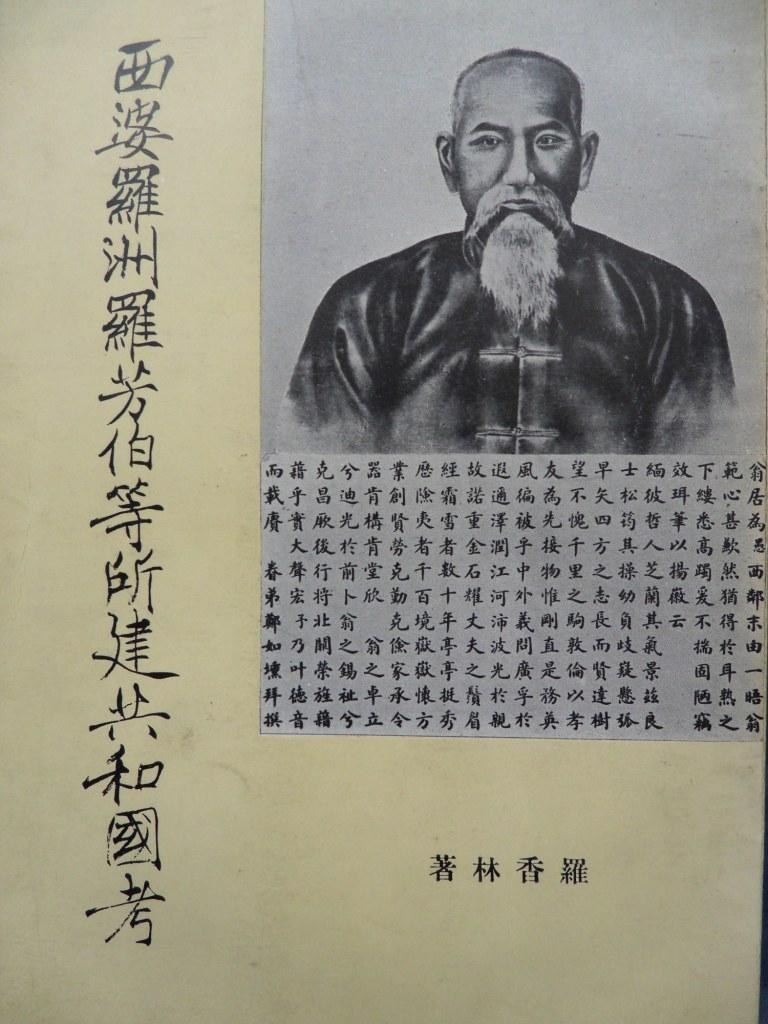 西婆羅洲羅芳伯等所建共和國考
翁居為邑西鄰末由一晤翁
範心甚歉然猶得於耳熟之
下縷悉高躅爰不揣固陋竊
效珥筆以揚徽云
緬彼哲人芝蘭其氣景茲良
士松筠其操幼負岐嶷懸弧
早矢四方之志長而賢達樹
望不愧千里之駒敦倫以孝
友為先接物惟剛直是務英
風徧被乎中外義問廣孚於
遐邇澤潤江河沛波光於親
故諾重金石耀丈夫之鬚眉
經霜雪者數十年亭亭挺秀
歷險夷者千百境嶽嶽懷方
業創賢勞克勤克儉家承令
器肯構肯堂欣 翁之卓立
兮迪光於前卜翁之錫祉兮
克昌厥後行將北闕榮旌藉
藉乎實大聲宏于乃叶德音
而載賡 眷弟鄭如壎拜撰
羅香林著